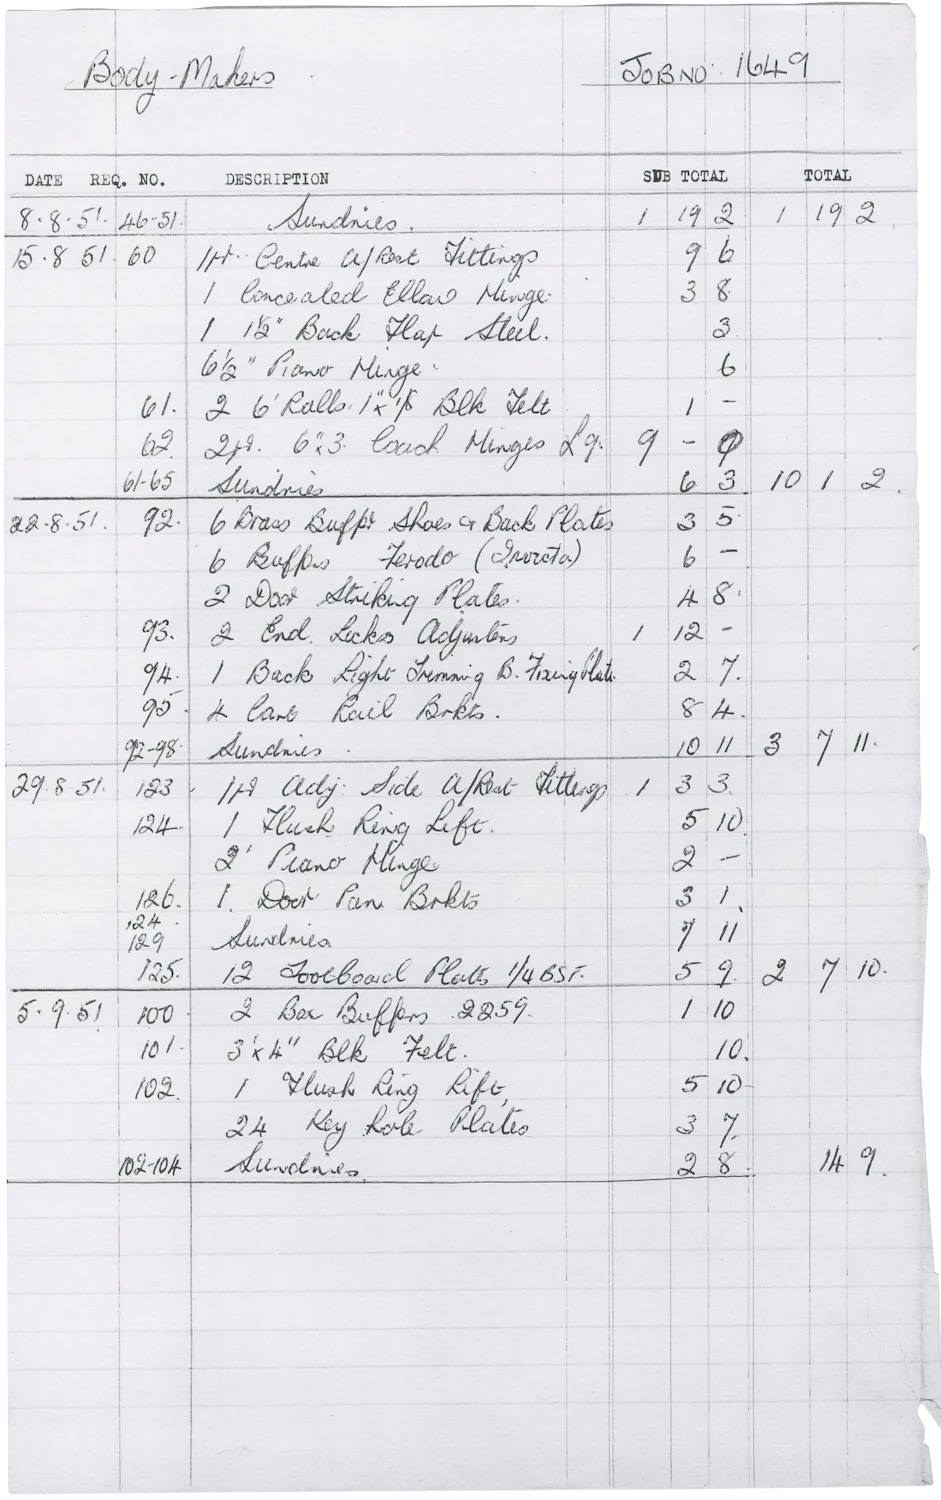 Body-Makers JOB NO. 1649
DATE REQ. NO. DESCRIPTION SUB TOTAL TOTAL
8.8.51. 46-51. Sundries. 1 19 2 1 19 2
15.8 51. 60 1pr. Centre A/Rest Fittings 9 6
1 Concealed Elbow Hinge. 3 8.
1 1½" Back Flap Steel. 3
6½" Piano Hinge. 6
61. 2 6' Rolls 1" x ⅛ Blk Felt 1 -
62. 2pr. 6"x3. Coach Hinges Lg. 9 - 9
61-65 Sundries 6 3 10 1 2.
22.8.51. 92. 6 Brass Buffer Shoes & Back Plates 3 5
6 Buffers Ferodo (Invicta) 6 -
2 Door Striking Plates. 4 8.
93. 2 End. Locks Adjusters 1 12 -
94. 1 Back Light Trimming B. Fixing Plate. 2 7.
95. 4 Cant Rail Brkts. 8 4.
92-98. Sundries. 10 11 3 7 11.
29.8 51. 123 1pr Adj. Side A/Rest Fittings 1 3 3.
124. 1 Flush Ring Lift. 5 10
2' Piano Hinge 2 -
126. 1. Door Pan Brkts 3 1.
124.
129 Sundries 7 11
125. 12 Footboard Plates 1/4 BSF. 5 9. 2 7 10.
5.9.51 100 2 Box Buffers 2259. 1 10
101. 3'x4" Blk Felt. 10.
102. 1 Flush Ring Lift, 5 10
24 Key hole Plates 3 7.
102-104 Sundries. 2 8. 14 9.